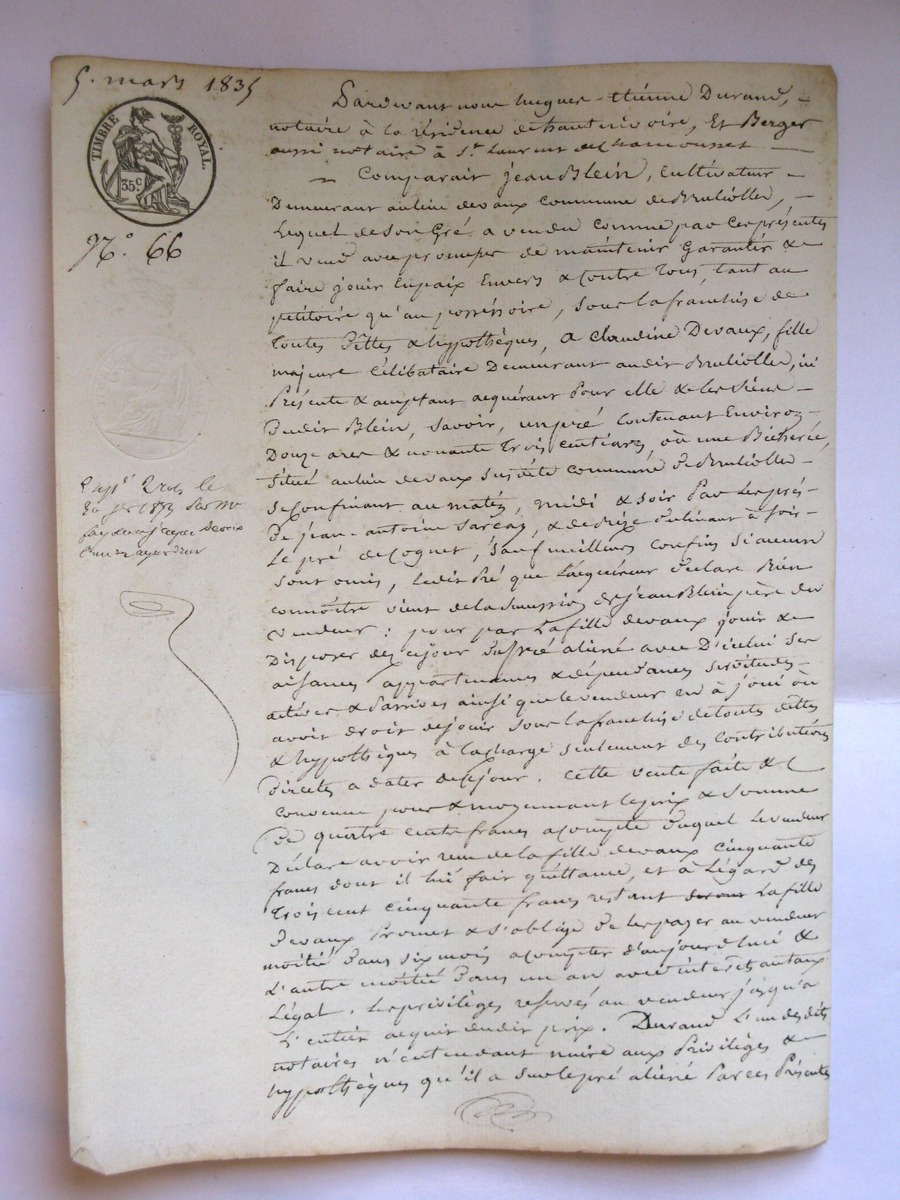 5. mars 1835
TIMBRE ROYAL.
35 c
N.° 66
Pardevant nous hugues-étienne Durand,
notaire à la résidence de hauterivoire, Et Berger
aussi notaire à St Laurent de chamousset
Comparait jean Blein, Cultivateur
Demeurant au lieu devaux commune de Bruliolles,
Lequel de son Gré a vendu comme par ces présentes
il vend avec promesse de maintenir Garantir &
faire jouir En paix Envers & Contre Tous, tant au
petitoire qu'au possessoire, sous la franchise de
Toutes Dettes & hypothèques, a Claudine Devaux, fille
majeure Célibataire Demeurant audit Brulliolles, ici
Présente & acceptant acquérant Pour elle & les Siens
Dudit Blein, Savoir, un pré Contenant Environ
Douze ares & nonante Trois Centiares, ou une Bicherée,
Situé au lieu devaux susdite commune de Brulliolles
se Confinant au matin, midi & soir Par les prés
De jean-antoine & de bize Déclinant à Soir
Le pré de Cognet, Sauf meilleurs confins si aucuns
Sont omis, Ledit Pré que L'acquéreur Déclare Bien
connoître vient de la Succession de jean Blein père du
Vendeur : pour par La fille devaux jouir &
Disposer dès ce jour Du Pré aliéné avec D'icelui Ses
aisances appartenances & dépendances Servitudes
actives & Passives ainsi que le vendeur en à joui ou
avoit droit de jouir sous la franchise de toutes dettes
& hypothèques à la charge Seulement des Contributions
Directes a dater de ce jour. Cette vente faite &
Convenue pour & moyennant le prix & Somme
De quatre cents francs acompte Duquel Le vendeur
Déclare avoir reçu de la fille devaux Cinquante
francs dont il lui fait quittance, et à L'égard des
Trois cent cinquante francs restant La fille
Devaux Promet & S'oblige De les payer au vendeur
moitié Dans six mois acompter d'aujourd'hui &
L'autre moitié Dans un an avec intérêts au taux
Légal. Les privilèges réservés au vendeur jusqu'a
L'entier acquit dudit prix. Durand L'un desdits
notaires n'entendant nuire aux Privilèges &
hypothèques qu'il a sur le pré aliéné Par ces Présentes